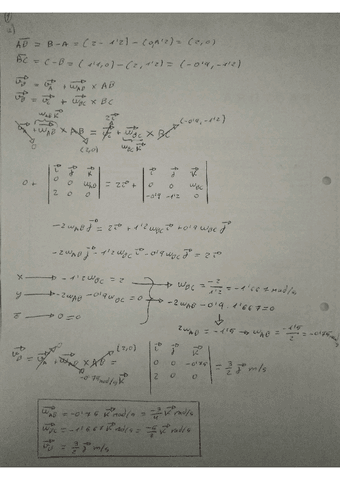 a)
AB = B-A = (2-1'2)-(0,1'2) = (2,0)
BC = C-B = (1'1,0)-(2,1'2) = (-0'9,-1'2)
v_B = v_A + ω_AB × AB
v_B = v_C + ω_BC × BC
ω_AB k 2i ω_BC k (-0'9,-1'2)
v_A + ω_AB × AB = v_C + ω_BC × BC
0 (2,0)
0 + | i j k | = 2i + | i j k |
0 0 ω_AB 0 0 ω_BC
2 0 0 -0'9 -1'2 0
-2ω_AB j = 2i + 1'2ω_BC i + 0'9ω_BC j
-2ω_AB j - 1'2ω_BC i - 0'9ω_BC j = 2i
x → -1'2ω_BC = 2 → ω_BC = -2/1'2 = -1'667 rad/s
y → -2ω_AB - 0'9ω_BC = 0 → -2ω_AB - 0'9·1'667 = 0
z → 0 = 0
2ω_AB = -1'5 → ω_AB = -1'5/2 = -0'75 rad/s
v_B = v_A + ω_AB × AB = | i j k | = 3/2 j m/s
0 -0'75 rad/s k (2,0) 0 0 -0'75
2 0 0
ω_AB = -0'75 k rad/s = -3/4 k rad/s
ω_BC = -1'667 k rad/s = -5/3 k rad/s
v_B = 3/2 j m/s